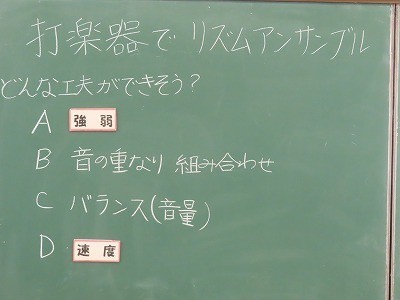 打楽器で リズムアンサンブル
どんな工夫ができそう？
A 強弱
B 音の重なり 組み合わせ
C バランス(音量)
D 速度